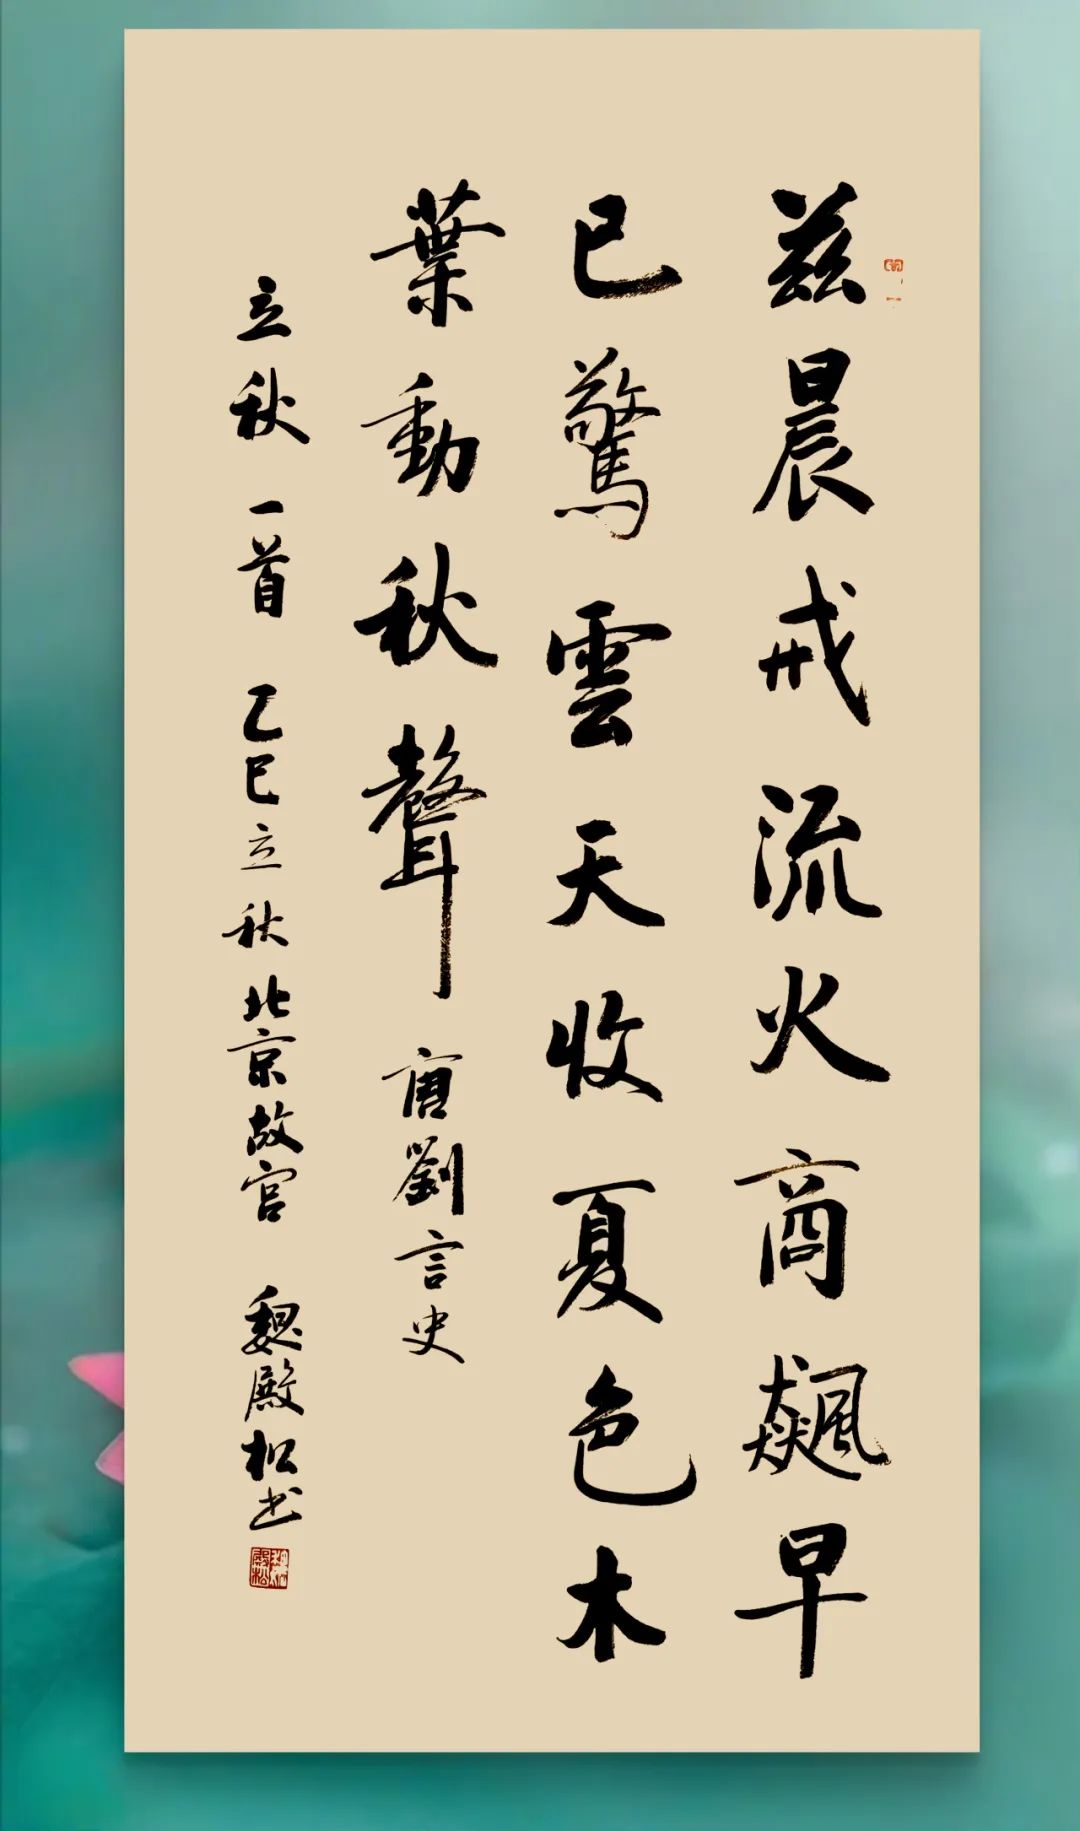 兹晨戒流火商飆早
已驚雲天收夏色木
葉動秋聲 唐劉言史
立秋一首 乙巳立秋北京故宫 魏殿松书